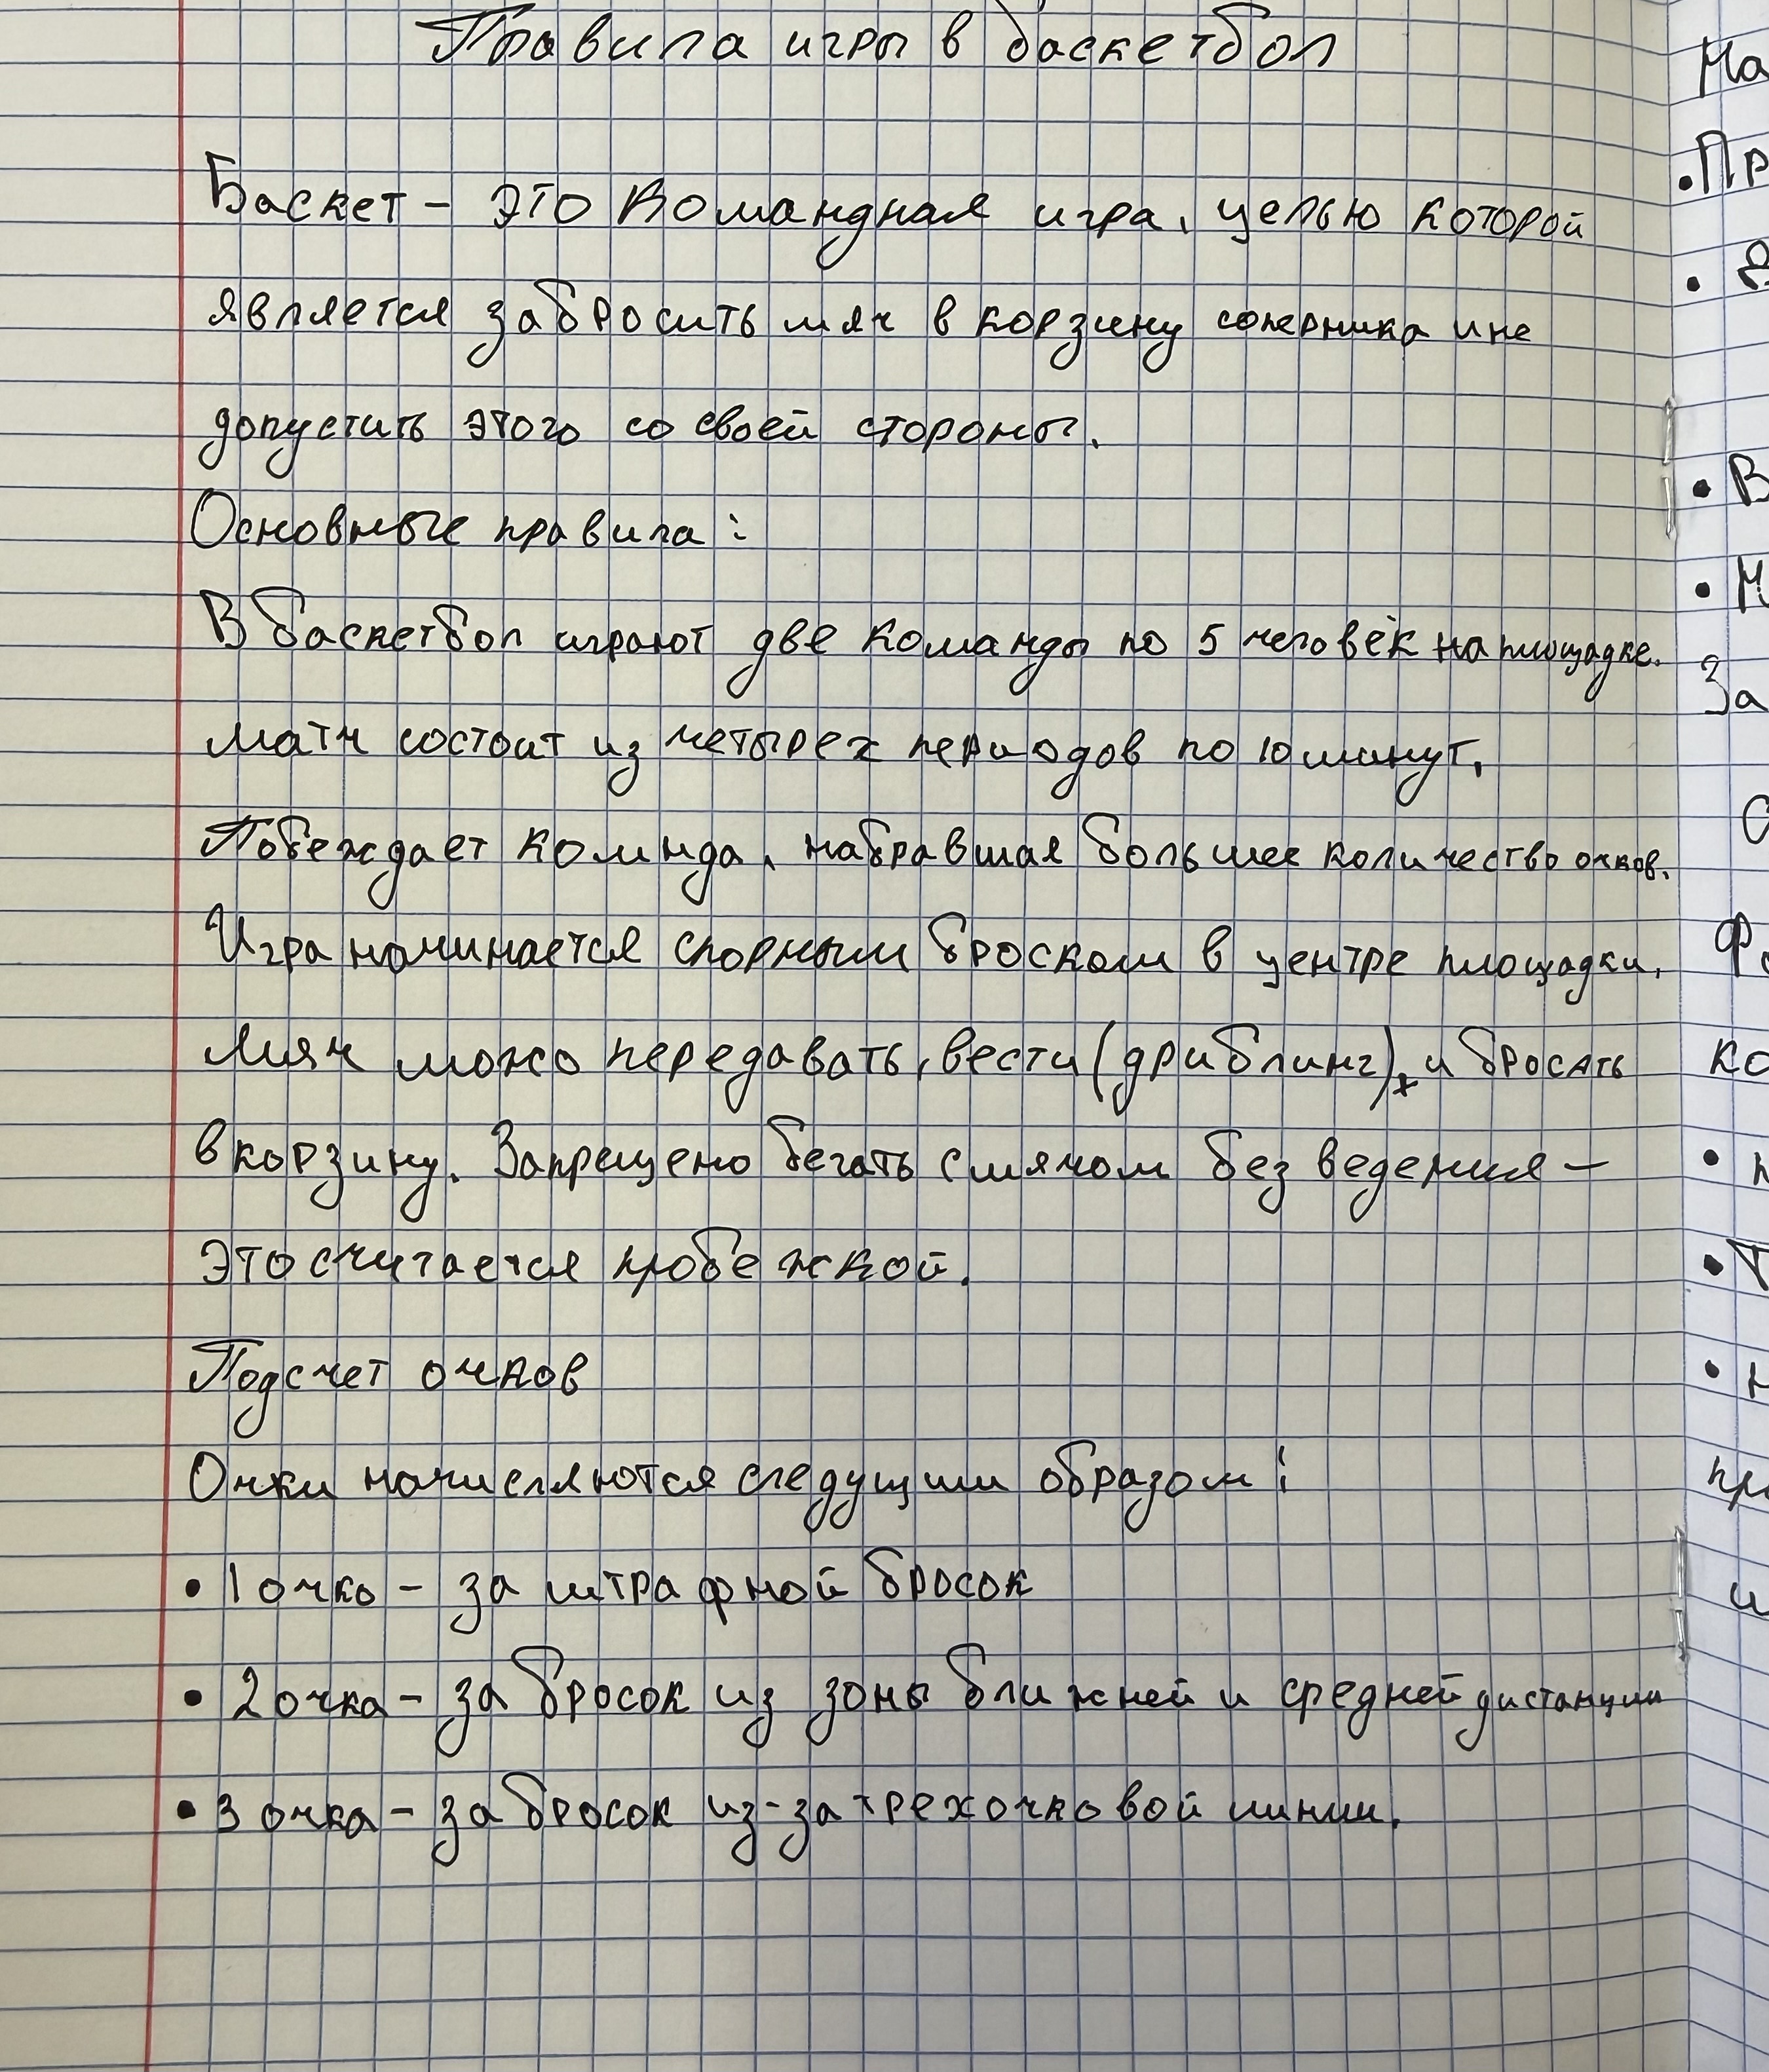 Правила игры в баскетбол
Баскет - это командная игра, целью которой
является забросить мяч в корзину соперника и не
допустить этого со своей стороны.
Основные правила:
В баскетбол играют две команды по 5 человек на площадке.
матч состоит из четырех периодов по 10 минут,
Побеждает коминда, набравшая большее количество очков.
Игра начинается спорным броском в центре площадки.
Мяч можо передавать, вести (дриблинг), и бросать
в корзину. Запрещено бегать с мячом без ведения -
это считается пробежкой.
Подсчет очков
Очки начисляются следущим образом:
• 1 очко - за штрафной бросок
• 2 очка - за бросок из зоны ближней и средней дистанции
• 3 очка - за бросок из-за трехочковой линии.